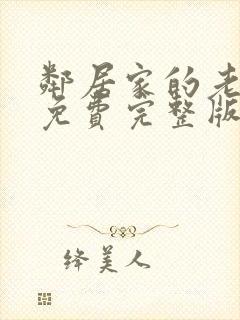 鄰居家的老
免費完整版
绛美人